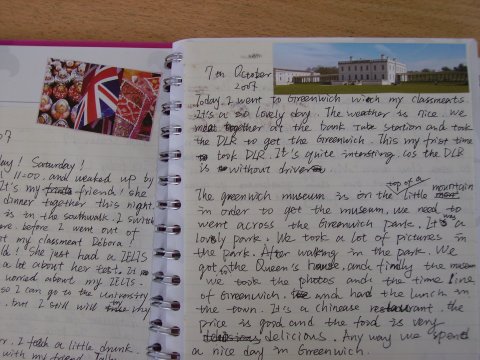 07
ay! Saturday!
11:00. and weaked up by
It's my friend! she
dinner together this night.
is in the southwalk. I switch
are before I went out of
my classment Débora!
ld! She just had a IELTS
a lot about her test. It
worried about my IELTS.
so I can go to the university
but I still will take my
I feel a little drunk.
with my friend
7th October
2007
Today, I went to Greenwich with my classments.
It's a so lovely day. The weather is nice. we
meet together at the bank Tube station and took
the DLR to get the Greenwich. This my frist time
to took DLR. It's quite intersting. cos the DLR
is without driver
The greenwich museum is on the top of a little mountain
in order to got the museum, we need to
went across the Greenwich park. It was a
lovely park. We took a lot of pictures in
the park. After walking in the park. We
got to the Queen's house, and finally the museum
we took the photos and the time line
of Greenwich. and had the lunch in
the town. It's a chinese restaurant. the
price is good and the food is very
delicious. Any way we spend
a nice day in Greenwich.